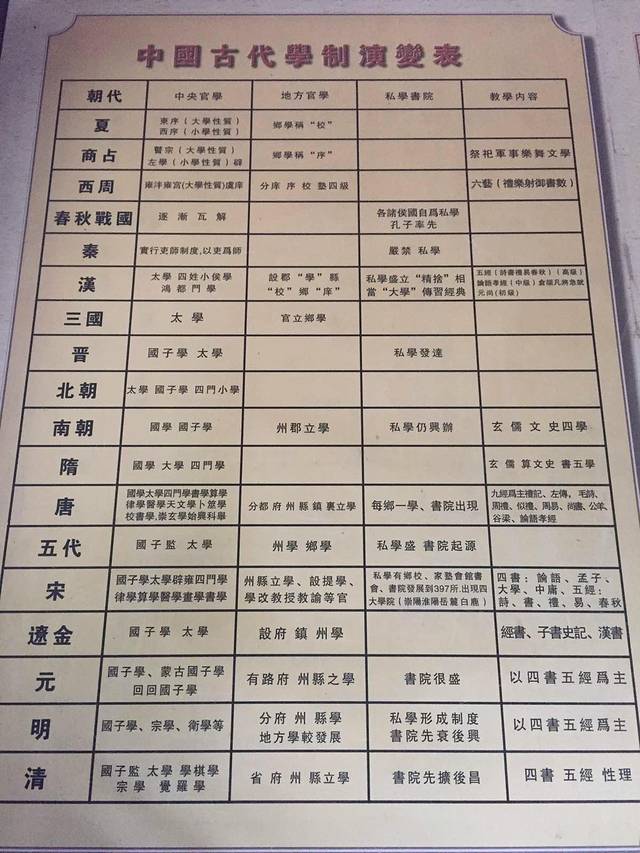 中國古代學制演變表
朝代 中央官學 地方官學 私學書院 教學内容
夏 東序(大學性質) 鄉學稱“校”
西序(小學性質)
商占 瞽宗(大學性質) 鄉學稱“序” 祭祀軍事樂舞文學
左學(小學性質)辟
西周 雍泮雍宮(大學性質)虞庠 分庠 序 校 塾四級 六藝(禮樂射御書數)
春秋戰國 逐漸瓦解 各諸侯國自爲私學
孔子率先
秦 實行吏師制度,以吏爲師 嚴禁 私學
漢 太學 四姓小侯學 設郡“學”縣 私學盛立“精捨”相 五經(詩書禮易春秋)(高級)
鴻都門學 “校”鄉“庠” 當“大學”傳習經典 論語孝經(中級)倉頡凡將急就
元尚(初級)
三國 太學 官立鄉學
晋 國子學 太學 私學發達
北朝 太學 國子學 四門小學
南朝 國學 國子學 州郡立學 私學仍興辦 玄 儒 文 史四學
隋 國學 大學 四門學 玄 儒 算文史 書五學
唐 國學太學四門學書學算學 分都府州縣鎮裏立學 每鄉一學、書院出現 九經爲主禮記、左傳,毛詩、
律學醫學天文學卜筮學 周禮、似禮、周易、尚書、公羊、
校書學,崇玄學始興科舉 谷梁、論語孝經
五代 國子監 太學 州學 鄉學 私學盛 書院起源
宋 國子學太學辟雍四門學 州縣立學、設提學、 私學有鄉校、家塾會館書 四書:論語、孟子、
律學算學醫學畫學書學 學改教授教諭等官 會、書院發展到397所.出現四 大學、中庸、五經:
大學院(崇陽淮陽岳麓白鹿) 詩、書、禮、易、春秋
遼金 國子學 太學 設府 鎮 州學 經書、子書史記、漢書
元 國子學、蒙古國子學 有路府 州縣之學 書院很盛 以四書五經爲主
回回國子學
明 國子學、宗學、衛學等 分府 州 縣學 私學形成制度 以四書五經爲主
地方學較發展 書院先衰後興
清 國子監 太學 學棋學 省 府 州 縣立學 書院先擴後昌 四書 五經 性理
宗學 覺羅學